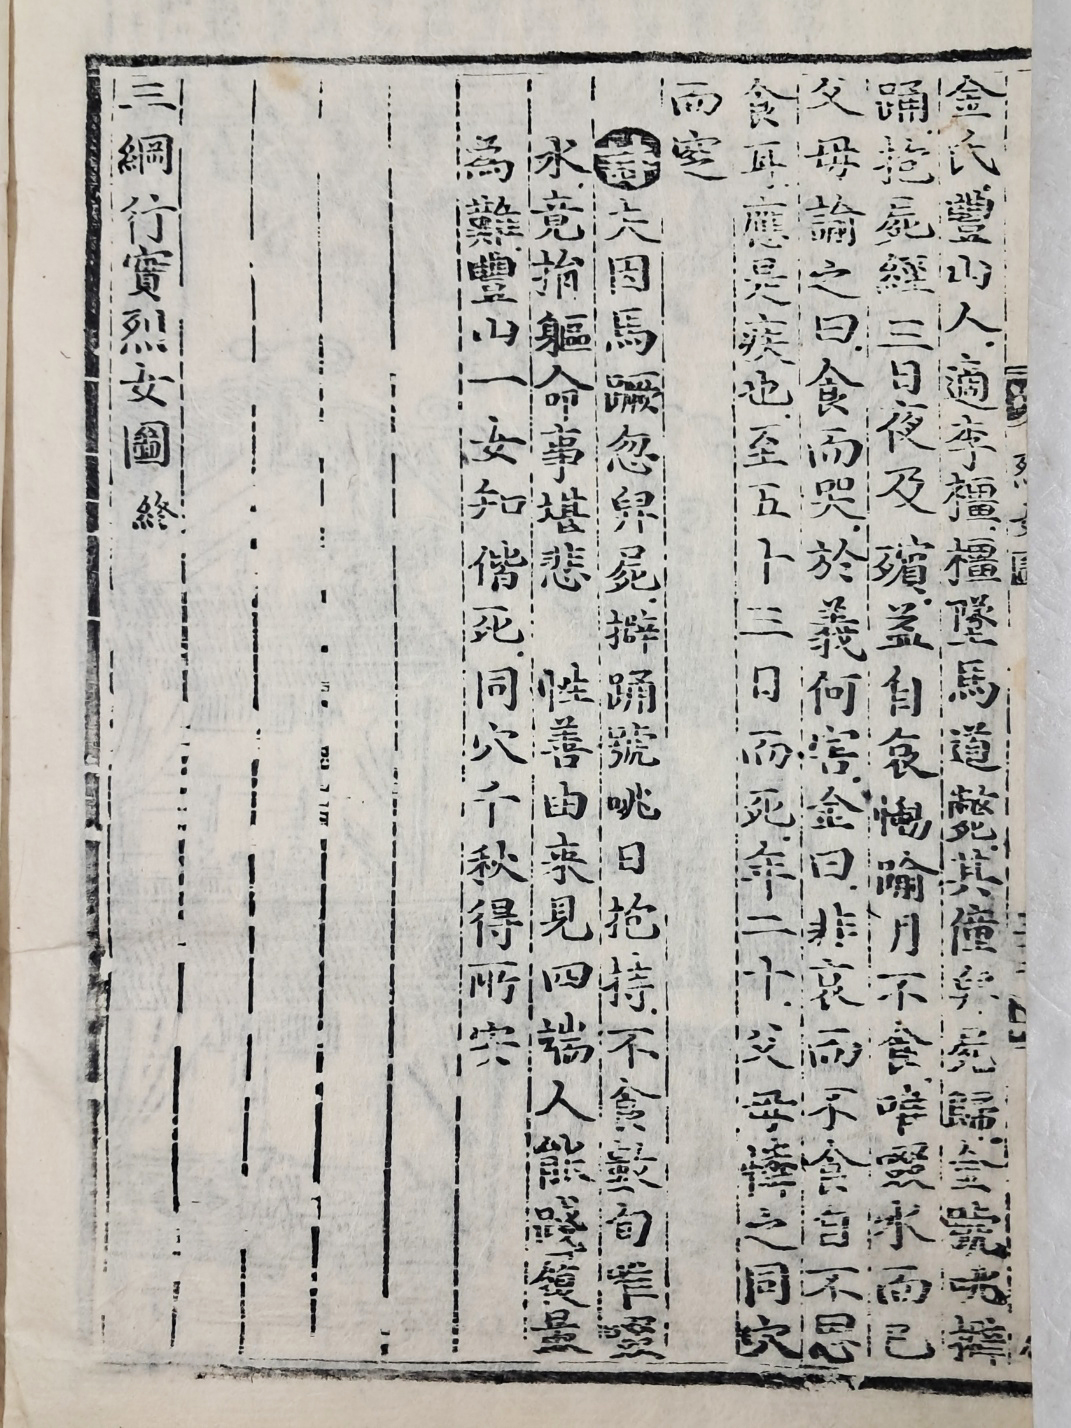 金氏豐山人適李橿橿墜馬道斃其僮舁屍歸金號咷擗
踊抱屍經三日夜及殯益自哀慟踰月不食唯啜水而已
父母諭之曰食而哭於義何害金曰非哀而不食自不思
食耳應是疾也至五十三日而死年二十父母葬之同穴
而窆
詩夫因馬蹶忽舁屍擗踊號咷日抱持不食數旬唯啜
水竟捐軀命事堪悲 性善由來見四端人能踐履最
為難豐山一女知偕死同穴千秋得所安
三綱行實烈女圖 終